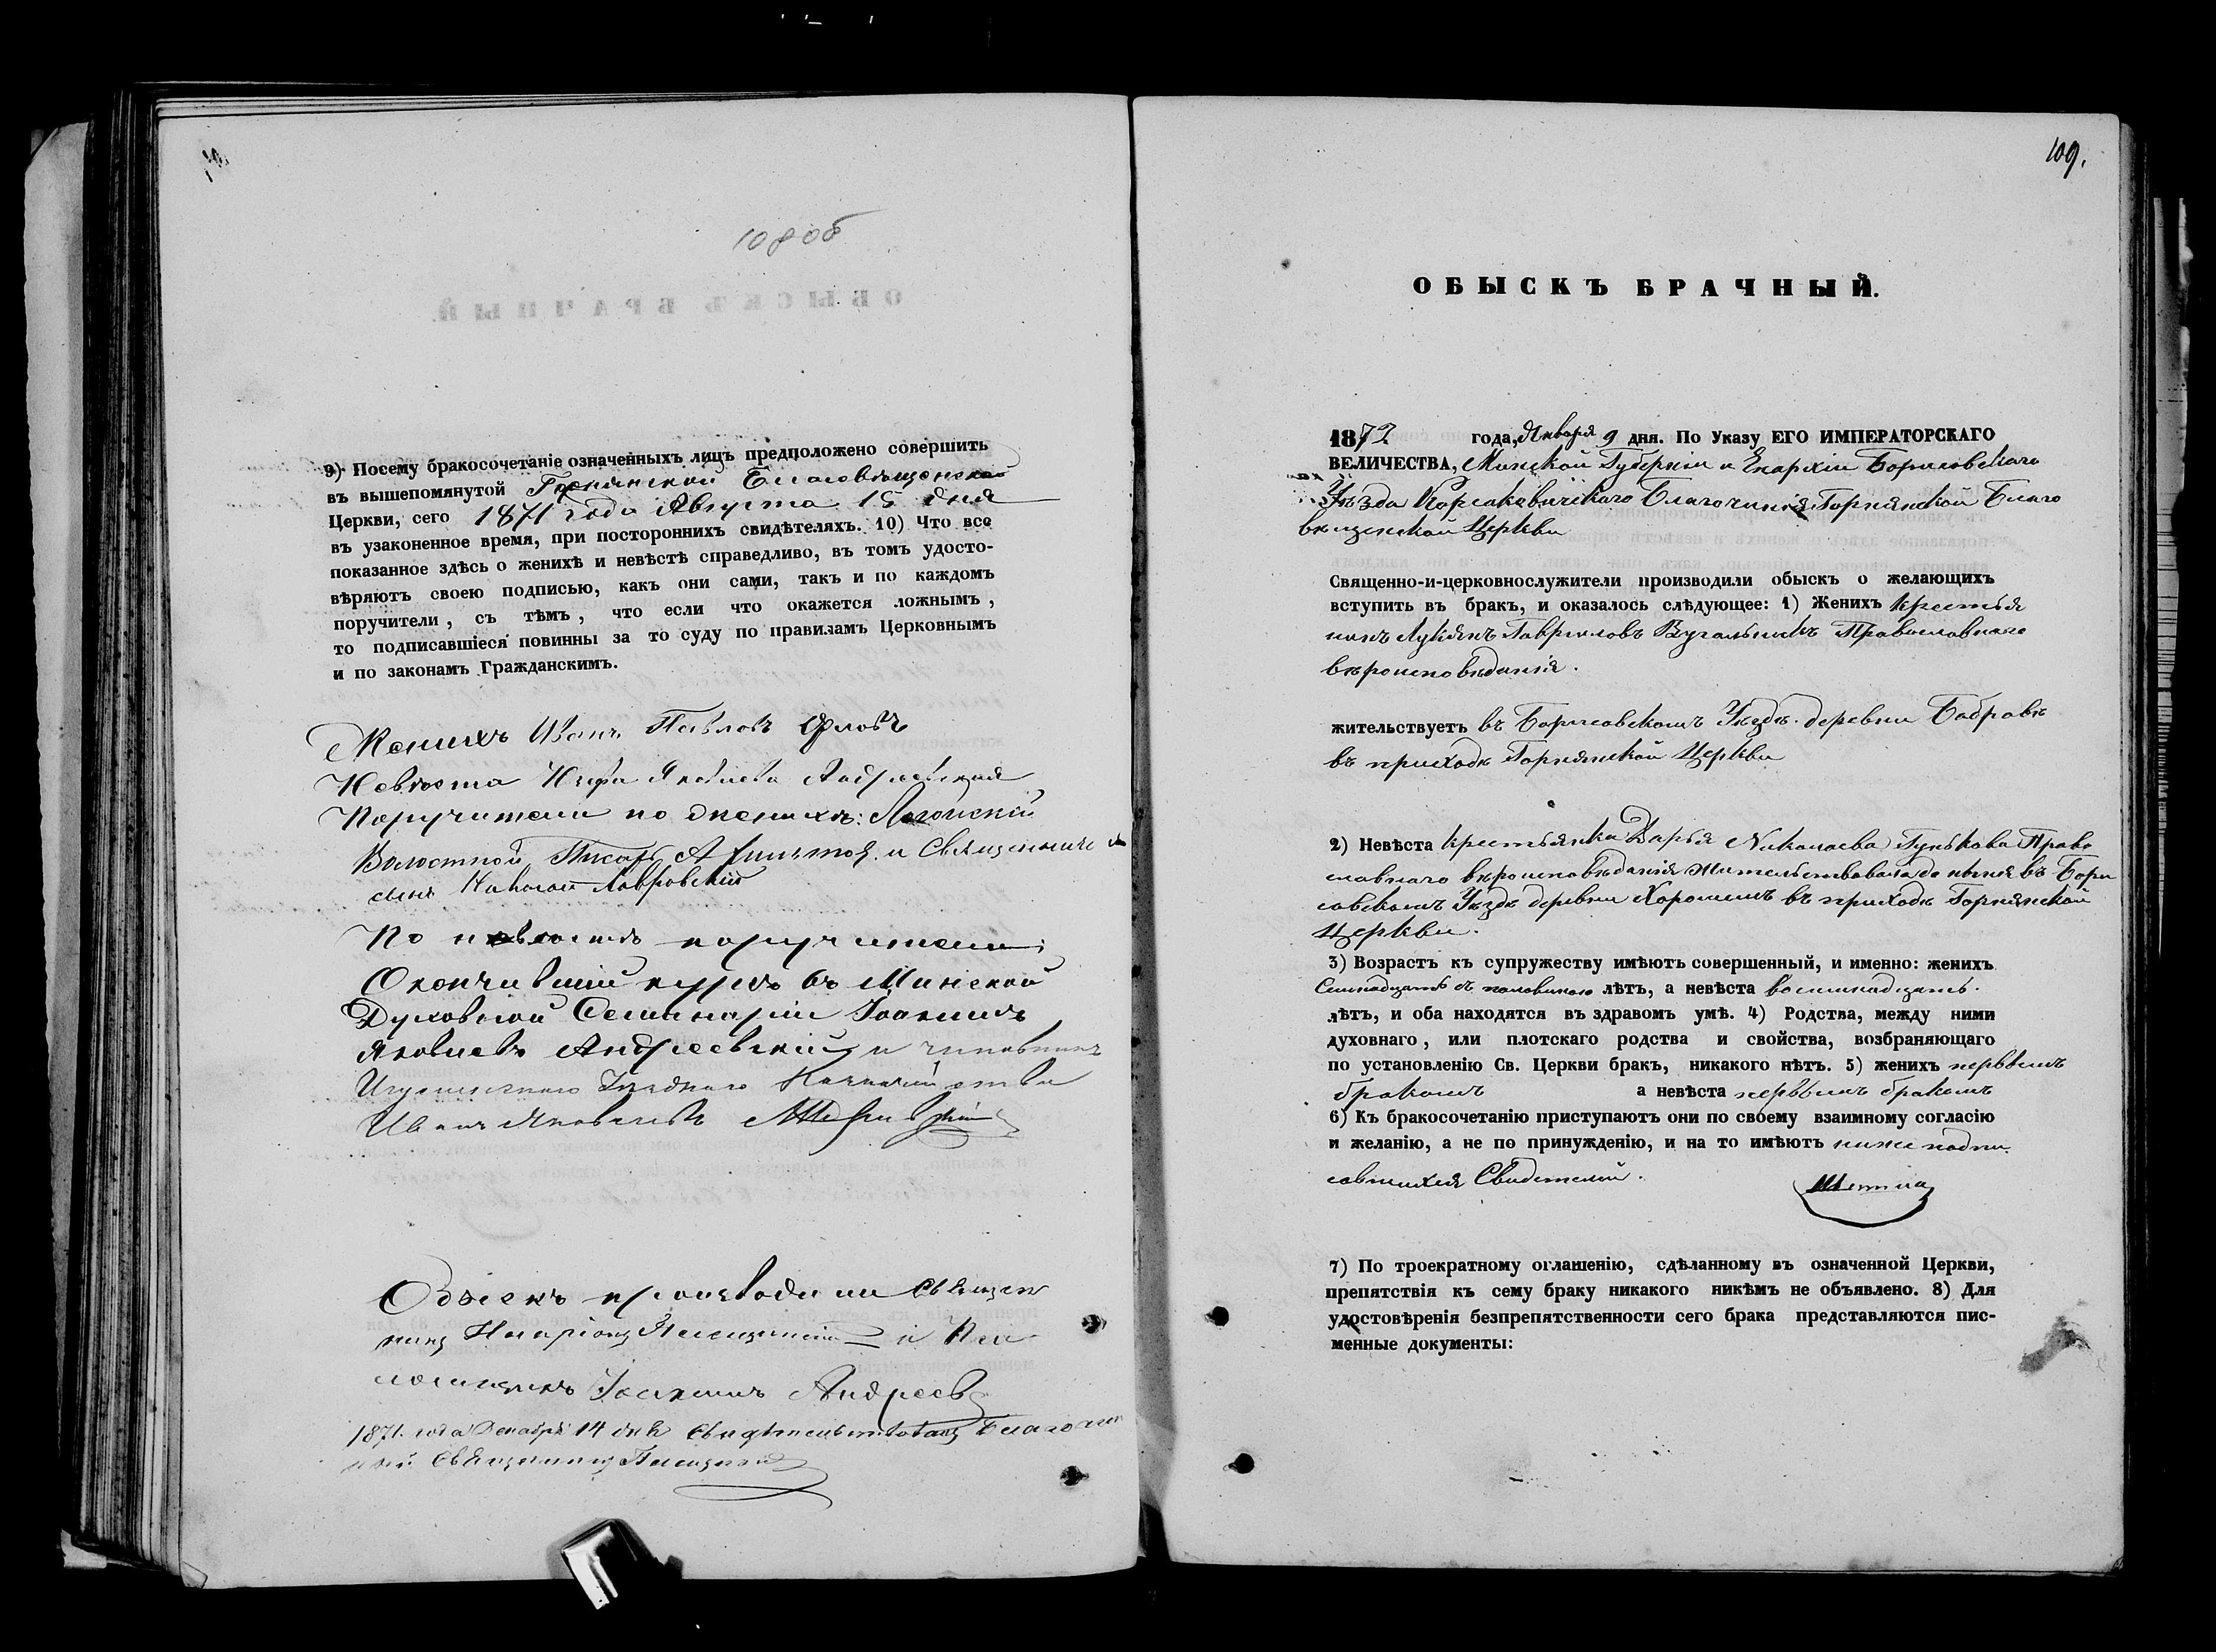 108об
9) Посему бракосочетаніе означенныхъ лицъ предположено совершить
въ вышепомянутой Горнянской Благовѣщенской
Церкви, сего 1871 года Августа 15 дня
въ узаконенное время, при постороннихъ свидѣтеляхъ. 10) Что все
показанное здѣсь о женихѣ и невѣстѣ справедливо, въ томъ удосто-
вѣряютъ своею подписью, какъ они сами, такъ и по каждомъ
поручители, съ тѣмъ, что если что окажется ложнымъ,
то подписавшіеся повинны за то суду по правиламъ Церковнымъ
и по законамъ Гражданскимъ.
Женихъ Иванъ Павловъ
Невѣста Яковлева Андреевская
Поручители по женихѣ: Логойскій
Волостной Писарь и Священнич
сынъ Николай Лавровскій
По невѣстѣ поручители:
Окончившій курсъ въ Минской
Духовной Семинаріи Іоакимъ
Яковлевъ Андреевскій и чиновникъ
Игуменскаго Уѣзднаго Казначейства
Иванъ Яковлевъ
Обыскъ производили Священ
никъ Иларіонъ и Пса
ломщикъ Іоакимъ Андреев
1871 года Декабря 14 дня свидѣтельствовалъ Благочин
ный Священникъ
109.
ОБЫСКЪ БРАЧНЫЙ.
1872 года, Января 9 дня. По Указу ЕГО ИМПЕРАТОРСКАГО
ВЕЛИЧЕСТВА, Минской Губерніи и Епархіи Борисовскаго
Уѣзда Корсаковичскаго Благочинія Горнянской Благо
вѣщенской Церкви
Священно-и-церковнослужители производили обыскъ о желающихъ
вступить въ бракъ, и оказалось слѣдующее: 1) Женихъ крестья
нинъ Лукіянъ Гавриловъ Вугальникъ Православнаго
вѣроисповѣданія.
жительствуетъ въ Борисовскомъ Уѣздѣ деревни Бабровѣ
въ приходѣ Горнянской Церкви
2) Невѣста крестьянка Дарья Николаева Гунькова Право
славнаго вѣроисповѣданія жительствовала до нынѣ въ Бори
совскомъ Уѣздѣ деревни Хоромцы въ приходѣ Горнянской
Церкви.
3) Возрастъ къ супружеству имѣютъ совершенный, и именно: женихъ
Семнадцать съ половиною лѣтъ, а невѣста восемнадцать.
лѣтъ, и оба находятся въ здравомъ умѣ. 4) Родства, между ними
духовнаго, или плотскаго родства и свойства, возбраняющаго
по установленію Св. Церкви бракъ, никакого нѣтъ. 5) женихъ первымъ
бракомъ а невѣста первымъ бракомъ
6) Къ бракосочетанію приступаютъ они по своему взаимному согласію
и желанію, а не по принужденію, и на то имѣютъ ниже подпи
савшихся Свидетелей.
7) По троекратному оглашенію, сдѣланному въ означенной Церкви,
препятствія къ сему браку никакого никѣмъ не объявлено. 8) Для
удостовѣренія безпрепятственности сего брака представляются пис-
менные документы: